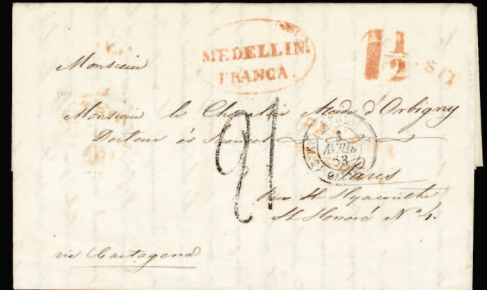 MEDELLIN.
FRANCA.
1 1/2
Monsieur
Monsieur le Chevalier Alcide d'Orbigny
Docteur ès
21
AVRIL
53
Paris
rue St Hyacinthe
St Honoré N°
via Cartagena